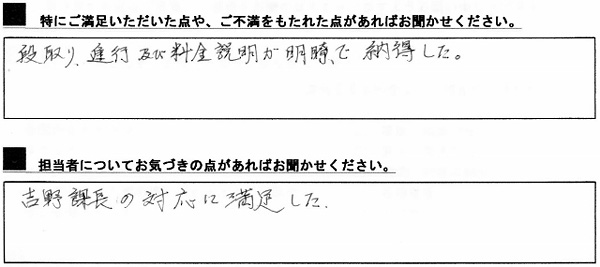 特にご満足いただいた点や、ご不満をもたれた点があればお聞かせください。
段取り、進行及び料金説明が明瞭で納得した。
担当者についてお気づきの点があればお聞かせください。
吉野課長の対応に満足した.